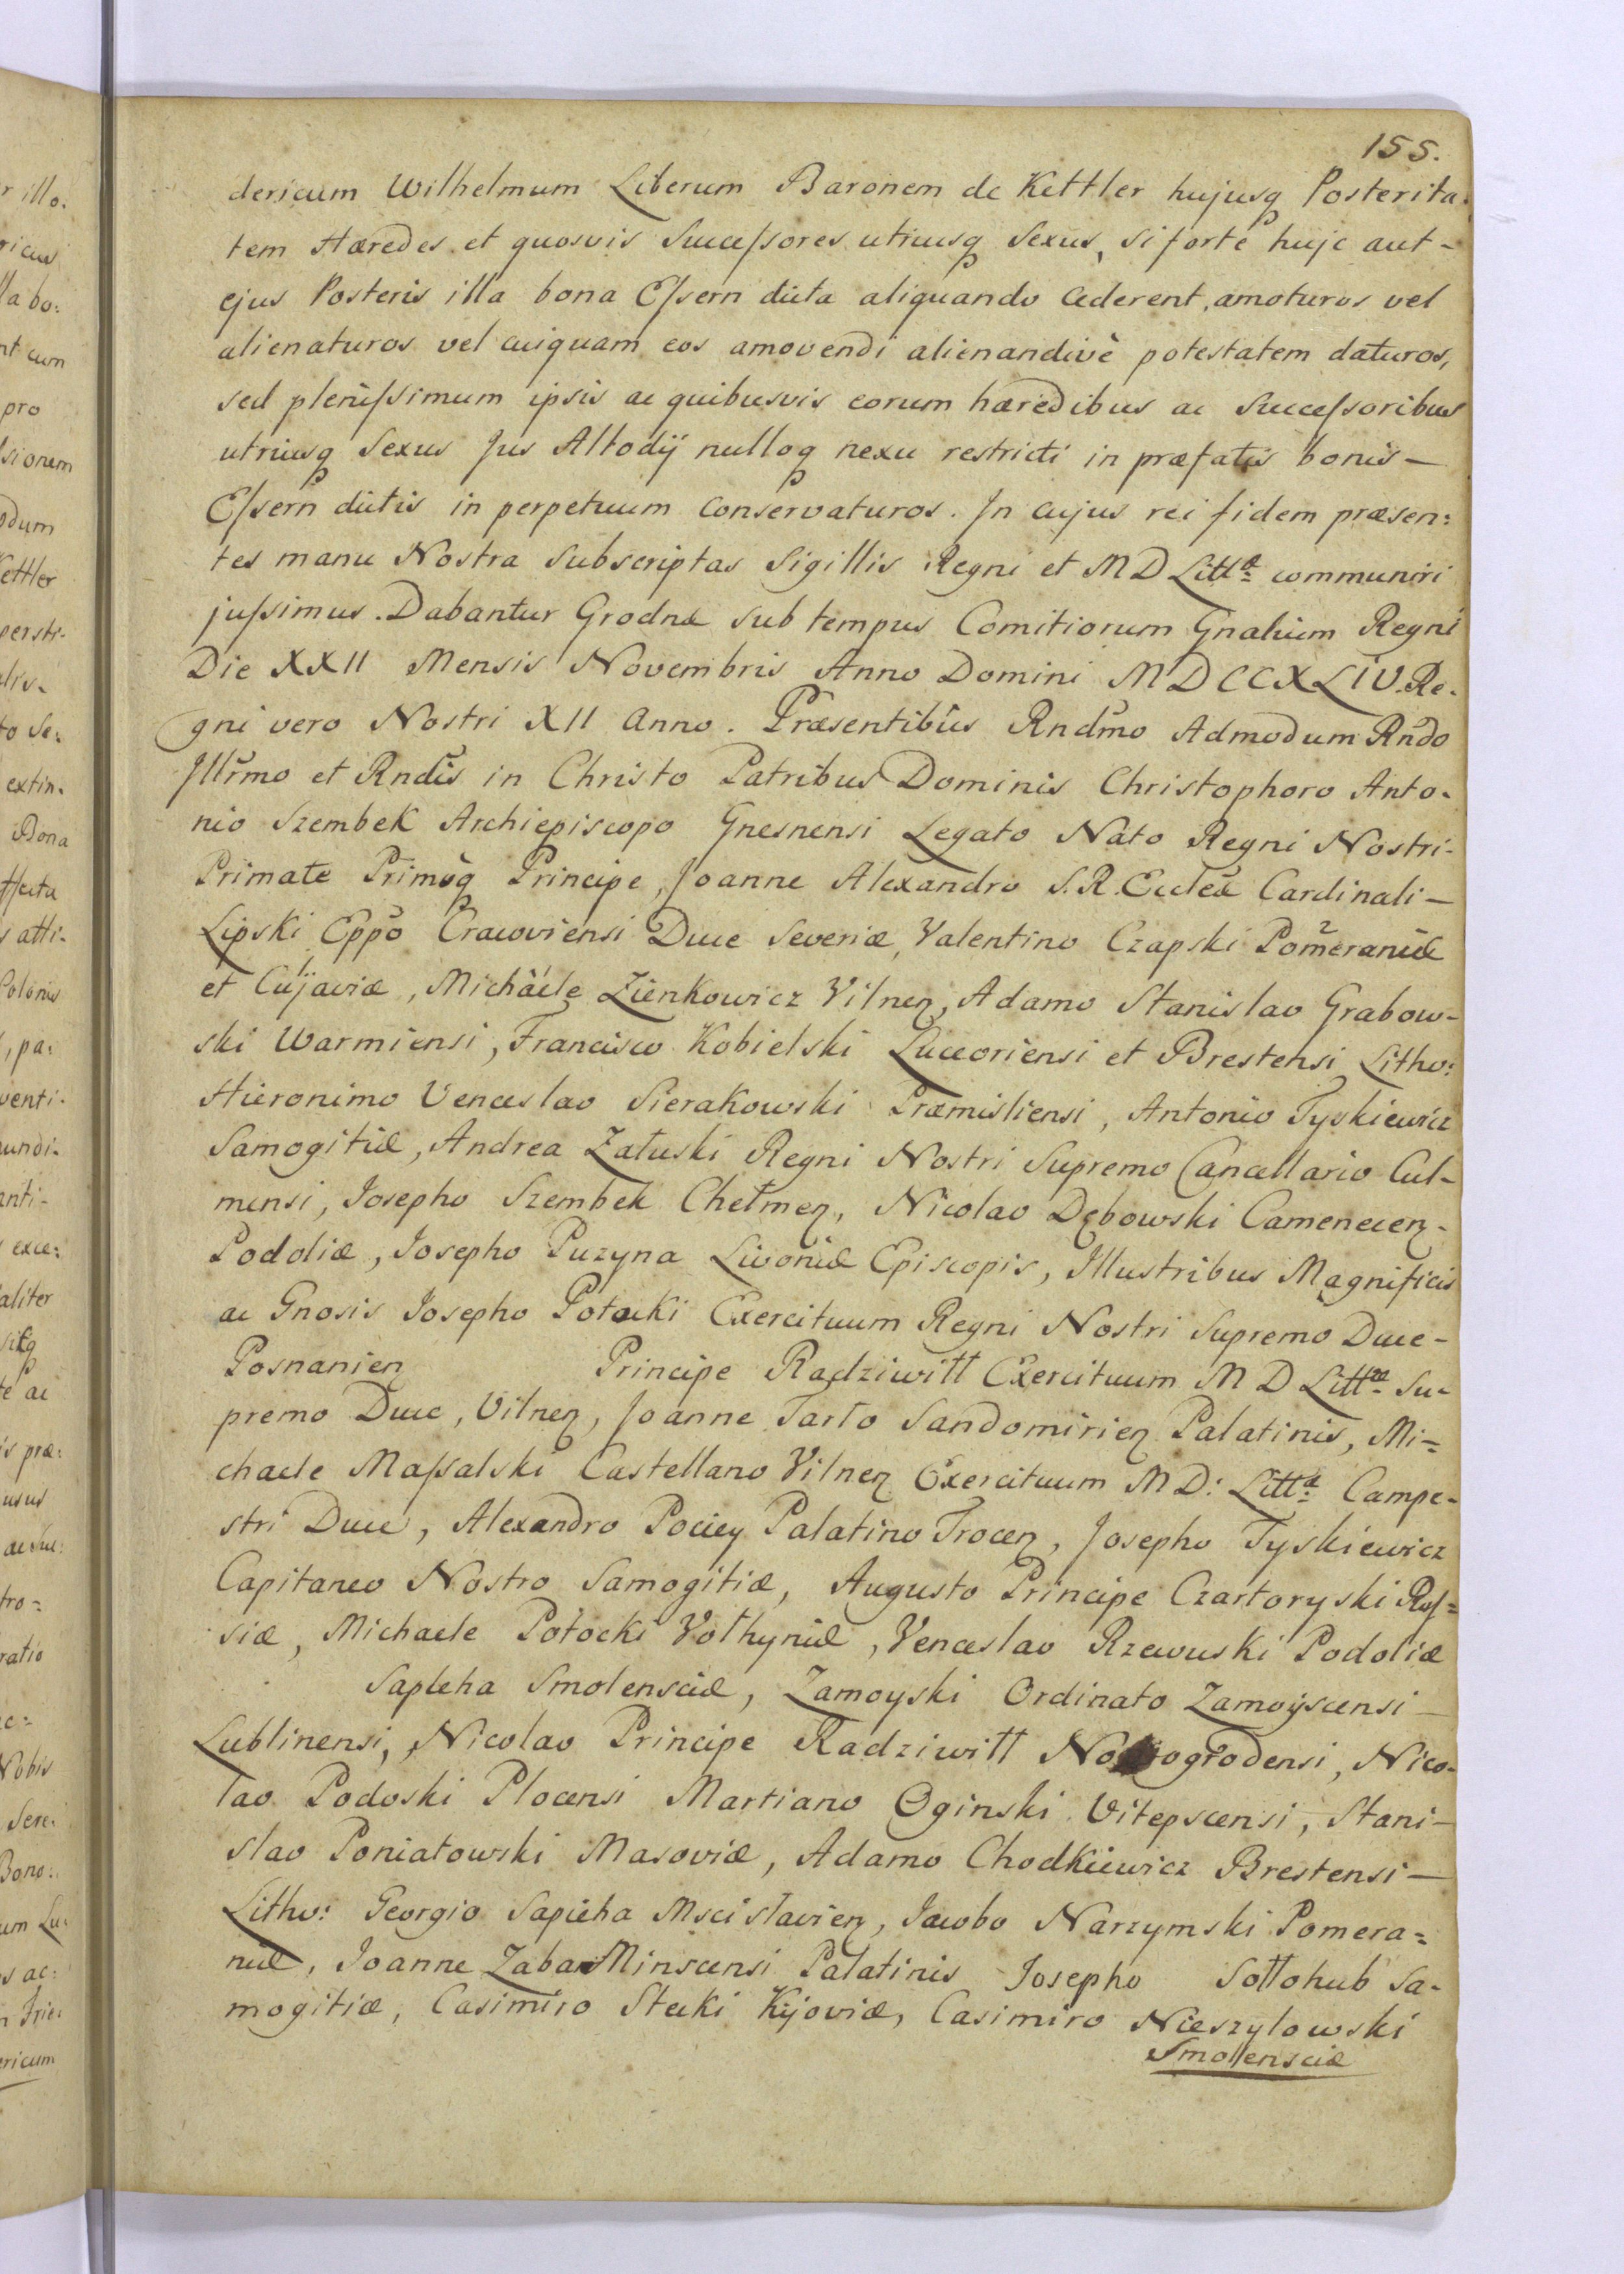 155.
dericum Wilhelmum Liberum Baronem de Kettler hujusq Posterita:
tem Hæredes et quosvis Succeſsores utriusq Sexus, si forte huic aut-
ejus Posteris illa bona Eſsern dicta aliquando cederent, amoturos vel
alienaturos vel cuiquam eos amovendi alienandivè potestatem daturos,
sed pleniſsimum ipsis ac quibusvis eorum hæredibus ac Succeſsoribus
utriusq Sexus Jus Allodij nulloq nexu restricti in præfatis bonis-
Eſsern dictis in perpetuum conservaturos. In cujus rei fidem præsen:
tes manu Nostra Subscriptas Sigillis Regni et M D Litt^æ communiri
juſsimus. Dabantur Grodnæ sub tempus Comitiorum Gnalium Regni
Die XXII Mensis Novembris Anno Domini MDCCXLIV. Re-
gni vero Nostri XII Anno. Præsentibus Rndmo Admodum Rndo
Illrmo et Rndis in Christo Patribus Dominis Christophoro Anto-
nio Szembek Archiepiscopo Gnesnensi Legato Nato Regni Nostri-
Primate Primoq Principe, Joanne Alexandro S. R. Eccleæ Cardinali-
Lipski Eppo Cracoviensi Duce Severiæ, Valentino Czapski Pomeraniæ
et Cujaviæ, Michaele Zienkowicz Vilnen, Adamo Stanislao Grabow-
ski Warmiensi, Francisco Kobielski Luceoriensi et Brestensi Lithv:
Hieronimo Venceslao Sierakowski Præmisliensi, Antonio Tyskiewicz
Samogitiæ, Andrea Załuski Regni Nostri Supremo Cancellario Cul-
mensi, Josepho Szembek Chełmen, Nicolao Dębowski Camenecen-
Podoliæ, Josepho Puzyna Livoniæ Episcopis, Illustribus Magnificis
ac Gnosis Josepho Potocki Exercituum Regni Nostri Supremo Duce-
Posnanien Principe Radziwiłł Exercituum M D Litt^æ Su-
premo Duce, Vilnen, Joanne Tarło Sandomirien Palatinis, Mi=
chaele Maſsalski Castellano Vilnen Exercituum M D: Litt^æ Campe-
stri Duce, Alexandro Pociey Palatino Trocen, Josepho Tyskiewicz
Capitaneo Nostro Samogitiæ, Augusto Principe Czartoryski Ruſ=
siæ, Michaele Potocki Volhyniæ, Venceslao Rzewuski Podoliæ
Sapieha Smolensciæ, Zamoyski Ordinato Zamoÿscensi-
Lublinensi, Nicolao Principe Radziwiłł Novogrodensi, Nico-
lao Podoski Plocensi Martiano Oginski Vitepscensi, Stani-
slao Poniatowski Masoviæ, Adamo Chodkiewicz Brestensi-
Lithv: Georgio Sapieha Mscislavien, Jacobo Narzymski Pomera=
niæ, Joanne Zaba Minscensi Palatinis Josepho Sołłohub Sa-
mogitiæ, Casimiro Stecki Kijoviæ, Casimiro Nieszyłowski
Smolensciæ